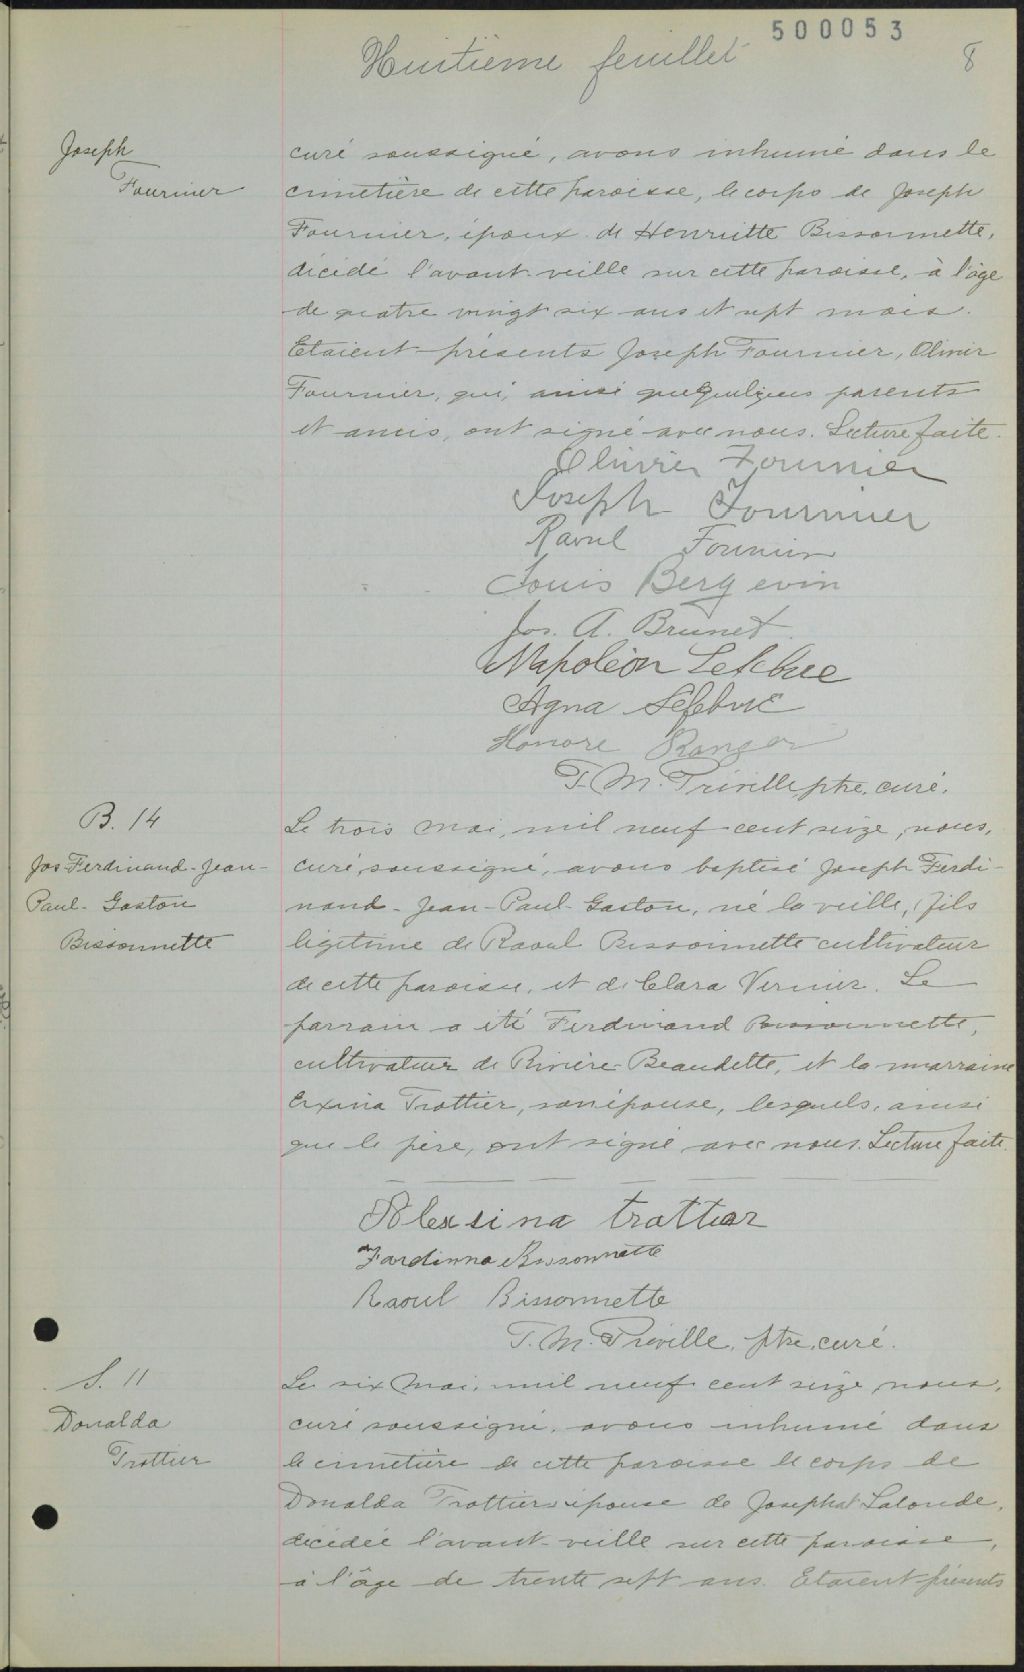 500053
Huitième feuillet 8
Joseph
Fournier
curé soussigné, avons inhumé dans le
cimetière de cette paroisse, le corps de Joseph
Fournier, époux de Henriette Bissonnette,
décédé l'avant-veille sur cette paroisse, à l'âge
de quatre vingt six ans et sept mois.
Etaient présents Joseph Fournier, Olivier
Fournier, qui, ainsi que quelques parents
et amis, ont signé avec nous. Lecture faite.
Olivier Fournier
Joseph Fournier
Raoul Fournier
Louis Bergevin
Jos. A. Brunet
Napoléon Lefebvre
Agna Lefebvre
Honore Ranger
T. M. Préville, ptre, curé.
B. 14
Jos Ferdinand-Jean-
Paul-Gaston
Bissonnette
Le trois mai, mil neuf cent seize, nous,
curé, soussigné, avons baptisé Joseph Ferdi-
nand-Jean-Paul-Gaston, né la veille, fils
légitime de Raoul Bissonnette cultivateur
de cette paroisse, et de Clara Vernier. Le
parrain a été Ferdinand Bissonnette,
cultivateur de Rivière Beaudette, et la marraine
Exina Trottier, son épouse, lesquels, ainsi
que le père, ont signé avec nous. Lecture faite.
Alexsina trottier
Fardinna Bissonnette
Raoul Bissonnette
T. M. Préville, ptre, curé.
S. 11
Donalda
Trottier
Le six mai, mil neuf cent seize, nous,
curé soussigné, avons inhumé dans
le cimetière de cette paroisse le corps de
Donalda Trottier épouse de Josephat Lalonde,
décédée l'avant-veille sur cette paroisse,
à l'âge de trente sept ans. Etaient présents